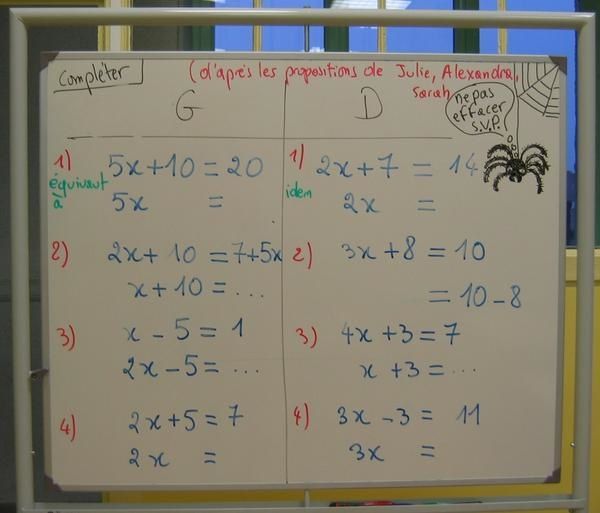 Compléter
(d'après les propositions de Julie, Alexandra,
Sarah
ne pas
effacer
S.V.P.!
G
D
1) 5x+10 = 20
équivaut
à
5x =
2) 2x+10 = 7+5x
x+10 = ...
3) x-5 = 1
2x-5 = ...
4) 2x+5 = 7
2x =
1) 2x+7 = 14
idem
2x =
2) 3x+8 = 10
= 10-8
3) 4x+3 = 7
x+3 = ...
4) 3x-3 = 11
3x =